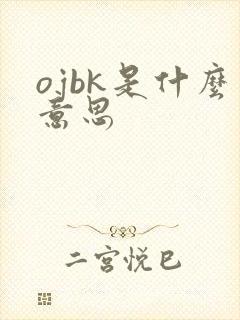 ojbk是什麼
意思
二宫悦巳